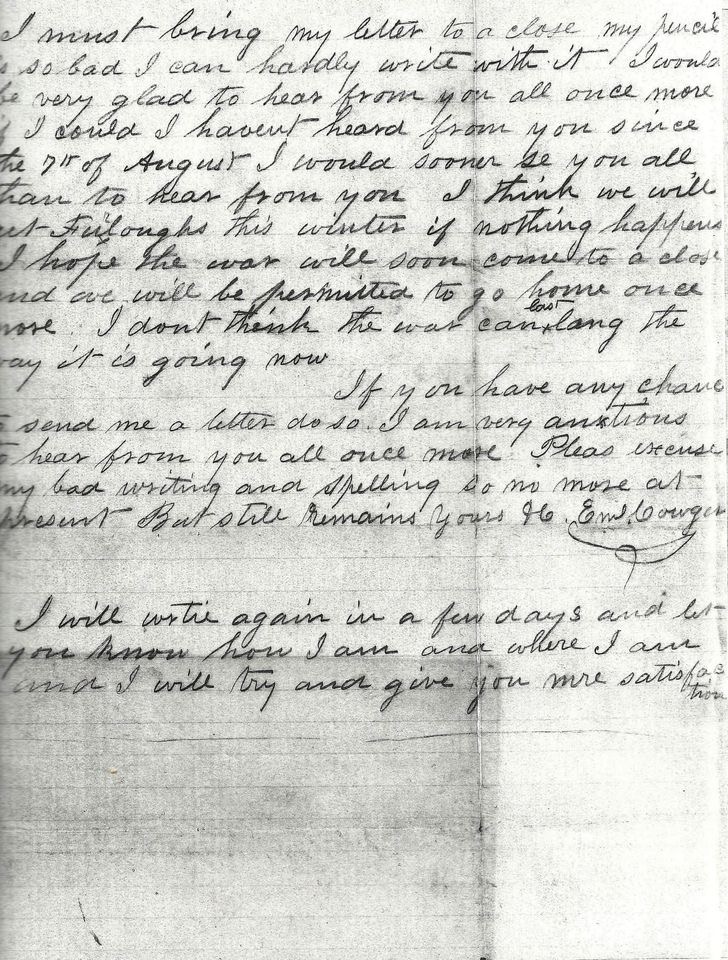 I must bring my letter to a close my pencil
s so bad I can hardly write with it I would
be very glad to hear from you all once more
if I could I havent heard from you since
the 7th of August I would sooner se you all
than to hear from you I think we will
get Fuloughs this winter if nothing happens
I hope the war will soon come to a close
and we will be permitted to go home once
more I dont think the war can last lang the
way it is going now
If you have any chanc
to send me a letter do so. I am very anxtious
to hear from you all once more Pleas excuse
my bad writing and spelling so no more at
present But still Remains Yours &c Cowger
I will wrtie again in a few days and let
you know how I am and where I am
and I will try and give you mre satisfac
tion